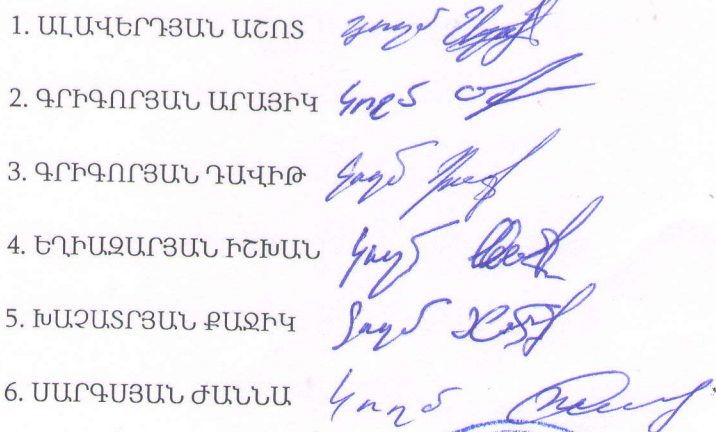 1. ԱԼԱՎԵՐԴՅԱՆ ԱՇՈՏ կողմ
2. ԳՐԻԳՈՐՅԱՆ ԱՐԱՅԻԿ կողմ
3. ԳՐԻԳՈՐՅԱՆ ԴԱՎԻԹ կողմ
4. ԵՂԻԱԶԱՐՅԱՆ ԻՇԽԱՆ կողմ
5. ԽԱՉԱՏՐՅԱՆ ՔԱՋԻԿ կողմ
6. ՍԱՐԳՍՅԱՆ ԺԱՆՆԱ կողմ